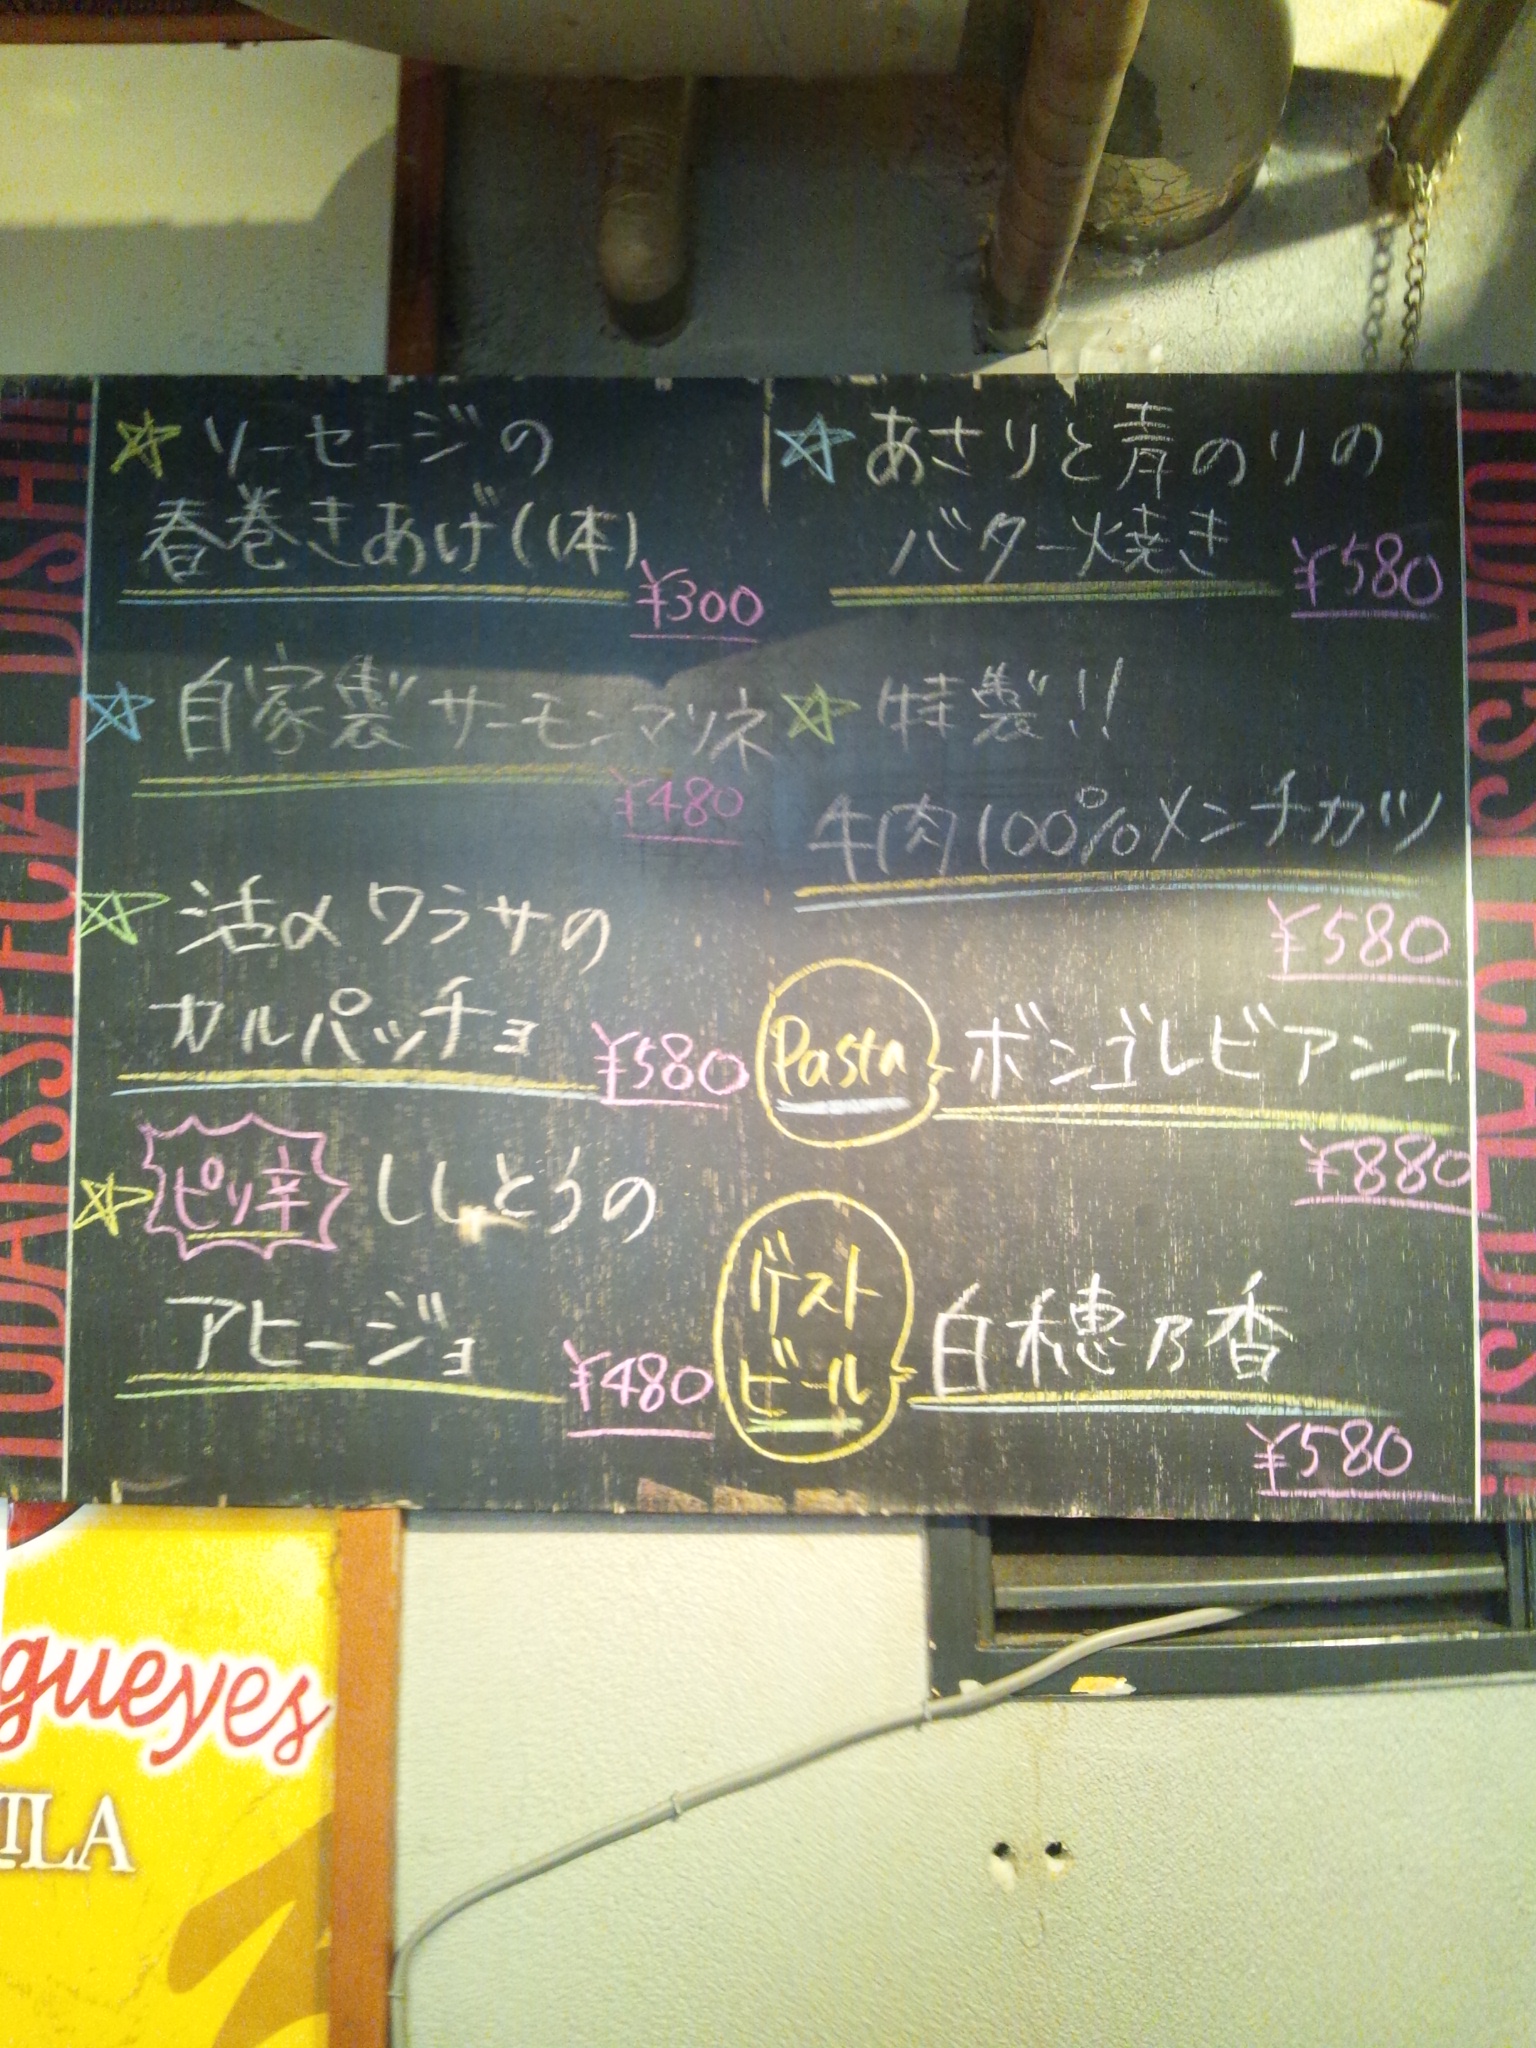 TODAY'S SPECIAL DISH!!
ソーセージの
春巻きあげ(1本)
¥300
自家製サーモンマリネ
¥480
活〆ワラサの
カルパッチョ
¥580
ピリ辛 ししとうの
アヒージョ
¥480
あさりと青のりの
バター焼き
¥580
特製!!
牛肉100%メンチカツ
¥580
Pasta ボンゴレビアンコ
¥880
ゲスト
ビール
白穂乃香
¥580
TODAY'S SPECIAL DISH!!
gueyes
ILA